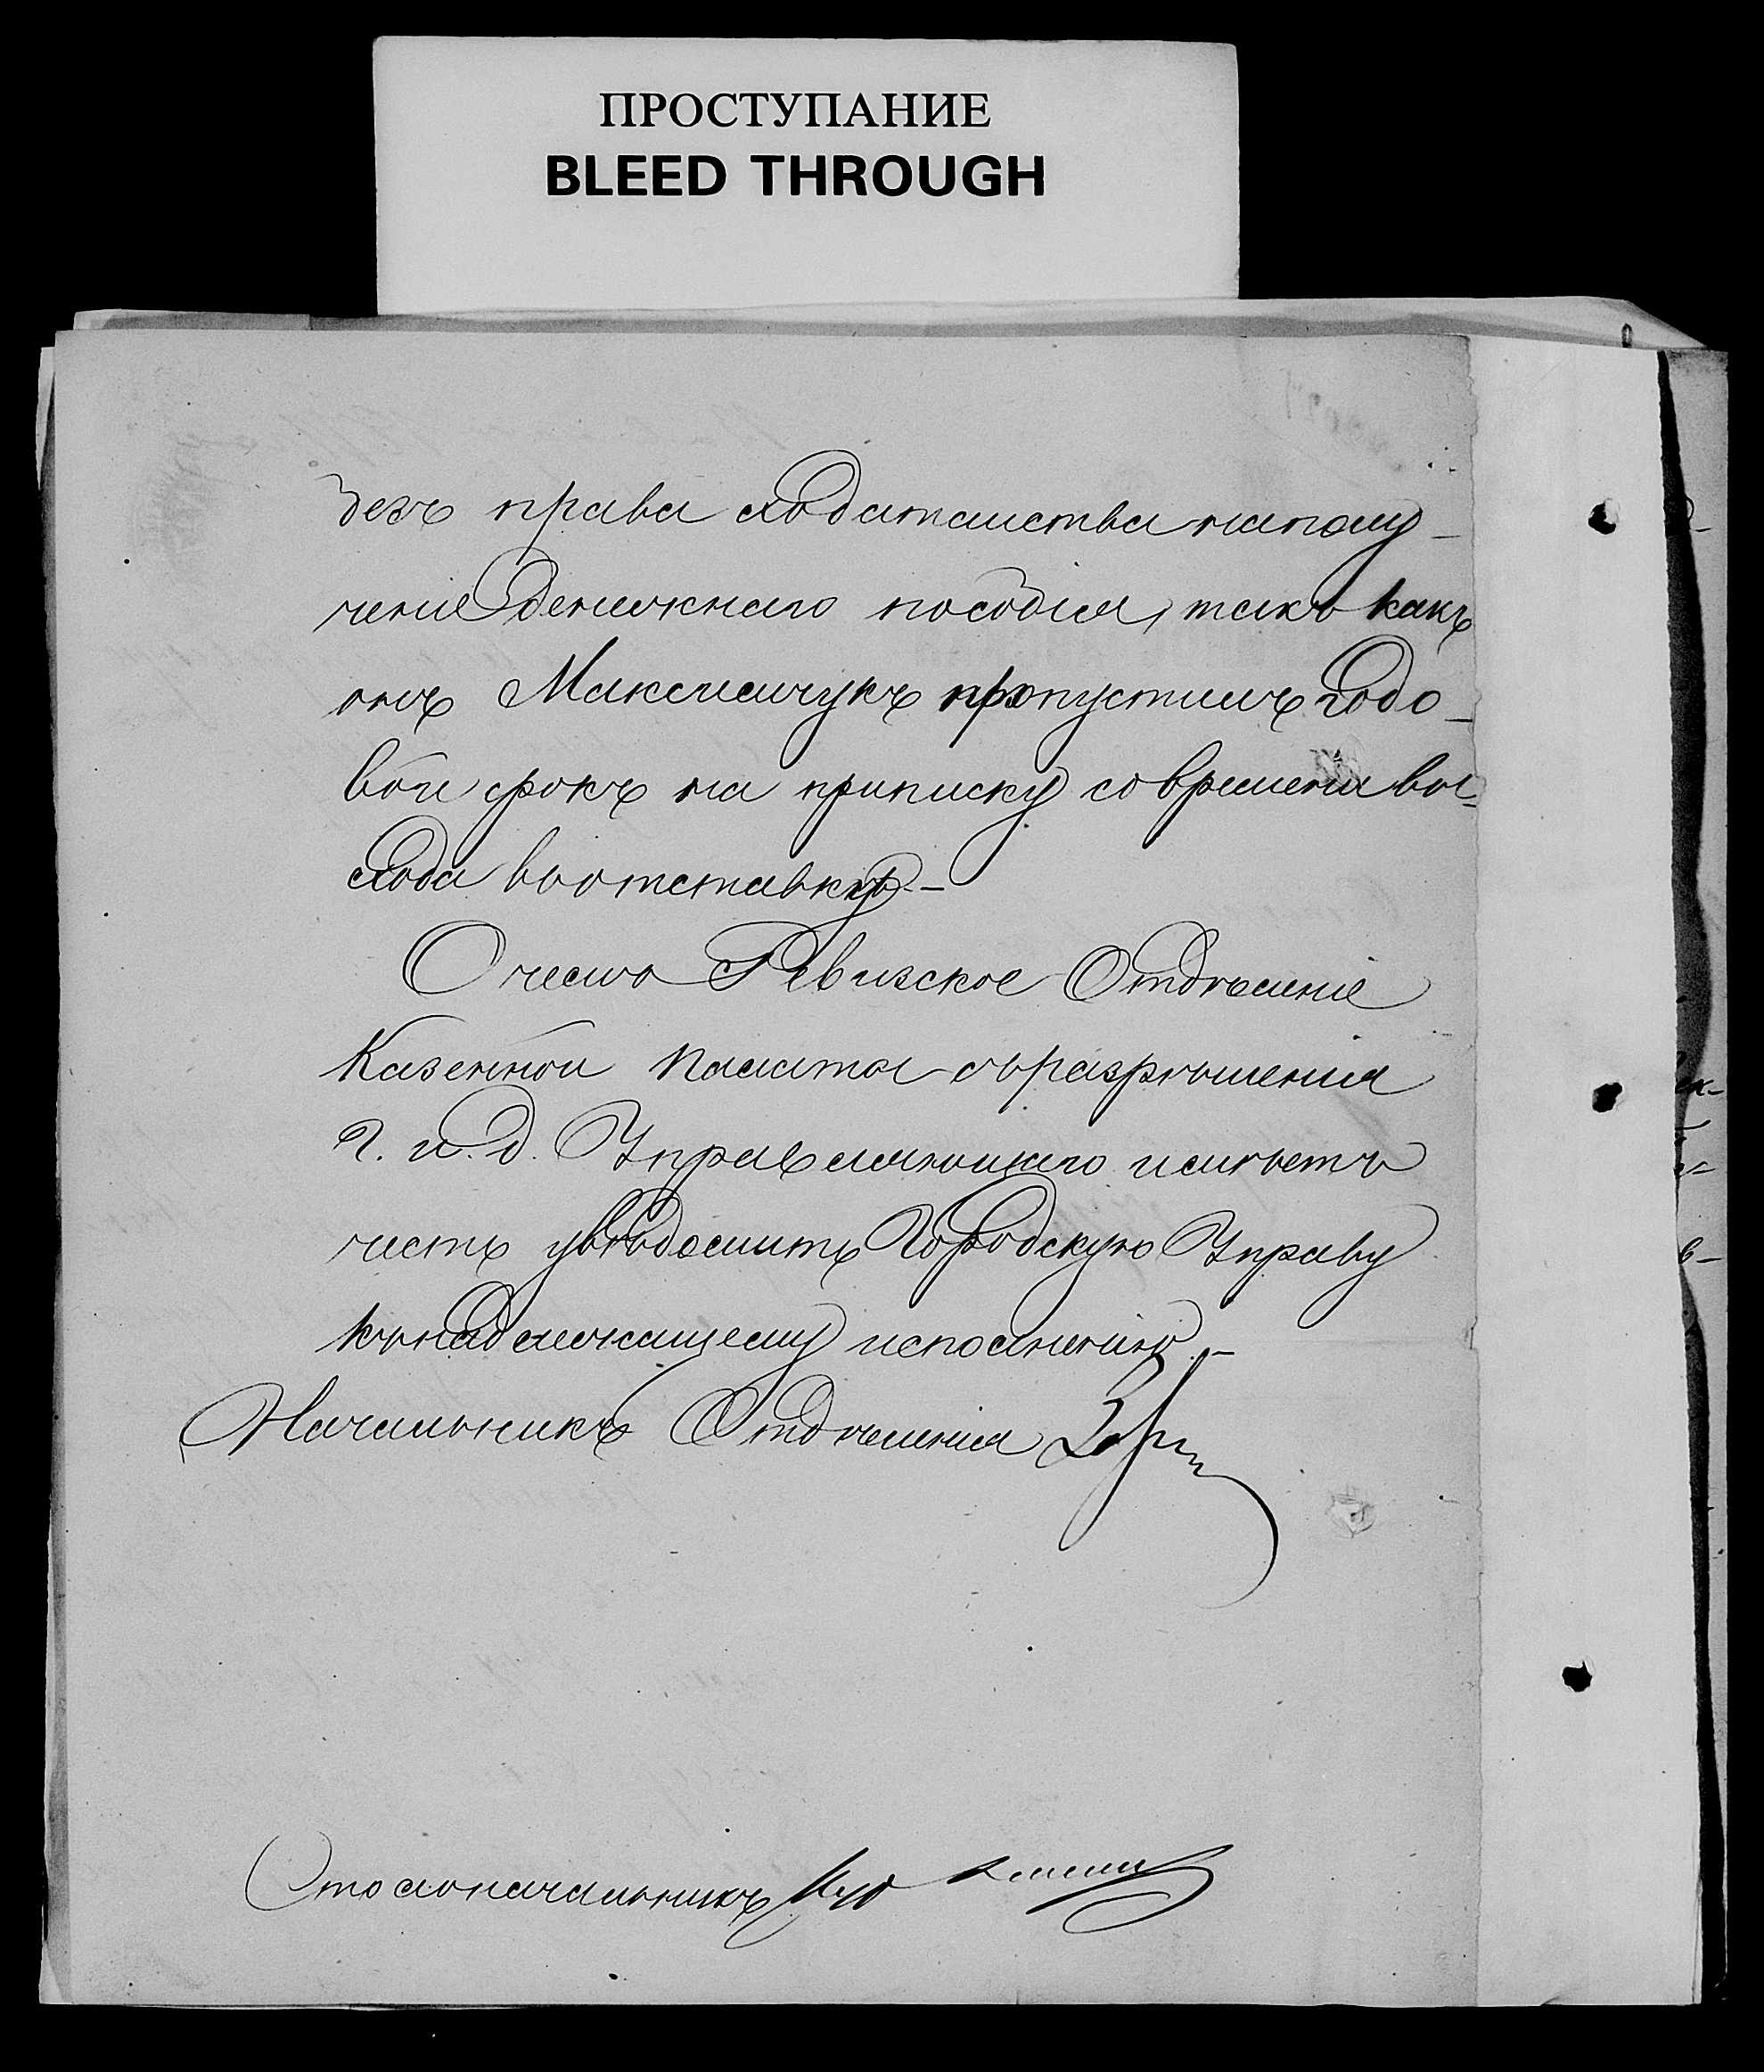 ПРОСТУПАНИЕ
BLEED THROUGH
безъ права ходатайства на полу-
ченіе денежнаго пособія, такъ какъ
онъ Максимчукъ пропустилъ годо-
вой срокъ на приписку со времени вы-
хода въ отставку.-
О чемъ Ревизское Отдѣленіе
Казенной Палаты съ разрѣшенія
Г. и. д. Управляющаго имѣетъ
честь увѣдомить Городскую Управу
къ надлежащему исполненію.-
Начальникъ Отдѣленія
Столоначальникъ